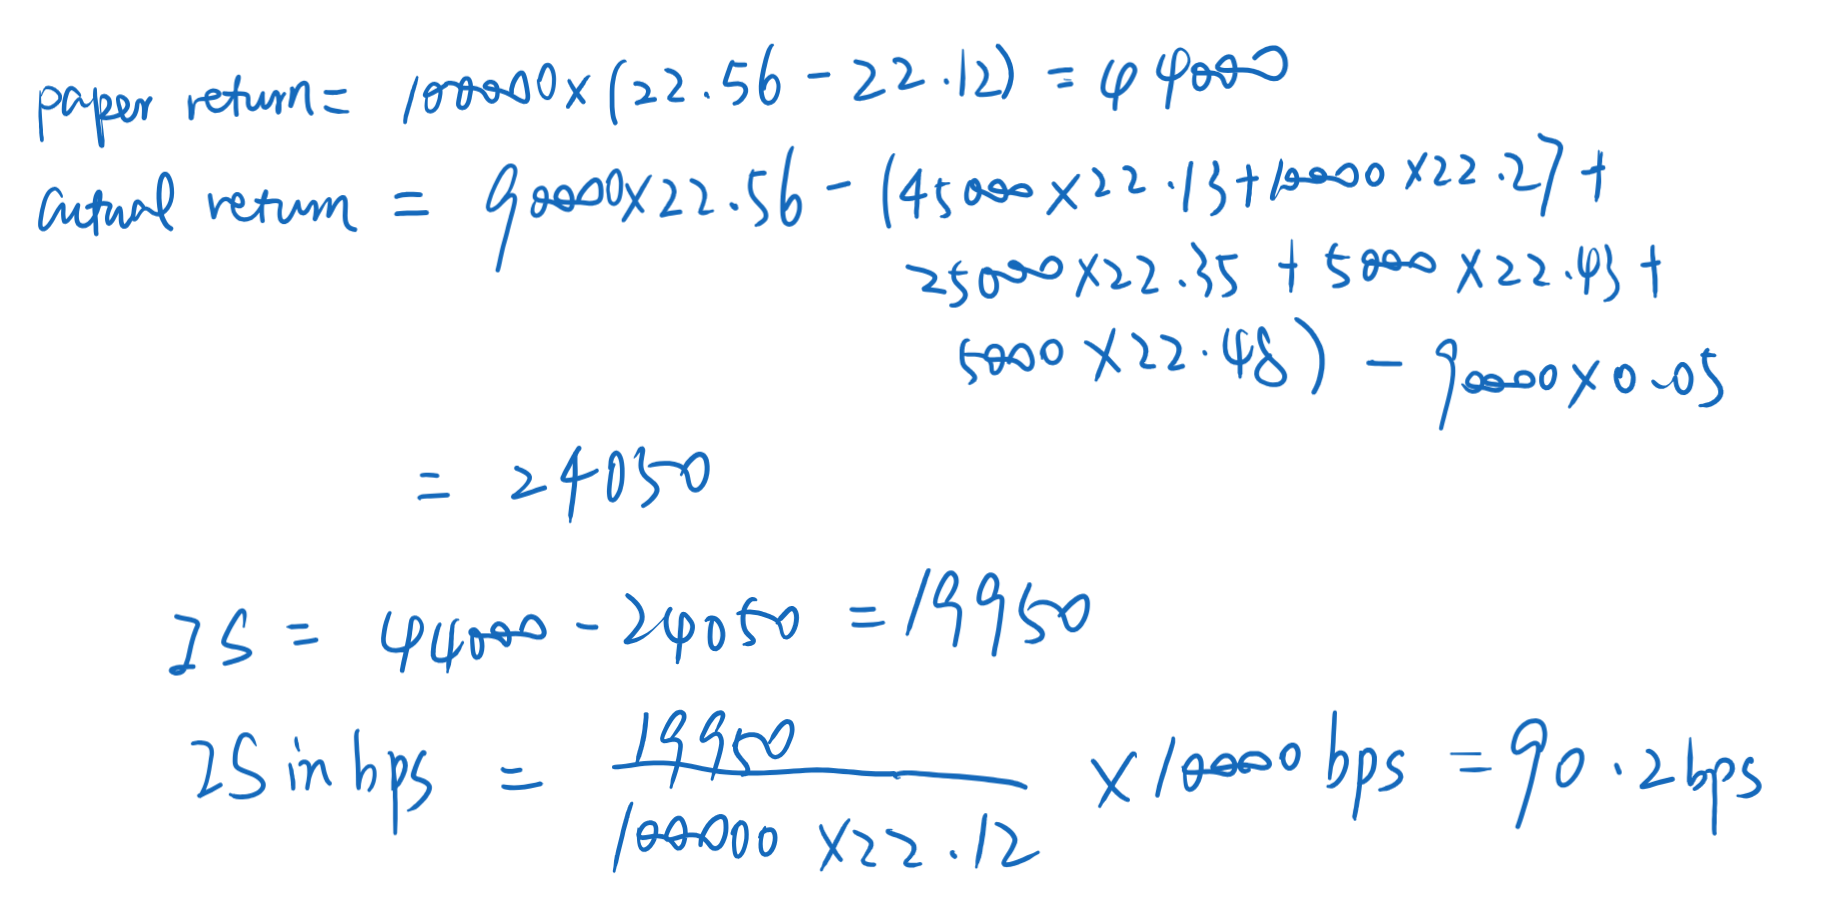 paper return = 100000 × (22.56 - 22.12) = 44000
actual return = 90000 × 22.56 - (45000 × 22.13 + 10000 × 22.27 +
25000 × 22.35 + 5000 × 22.43 +
5000 × 22.48) - 90000 × 0.05
= 24050
IS = 44000 - 24050 = 19950
IS in bps = 19950 / 100000 × 22.12 × 10000 bps = 90.2 bps